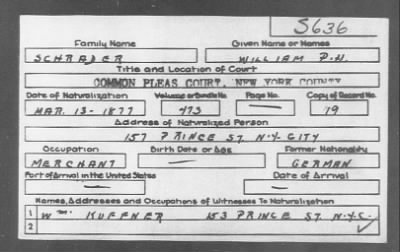 S636
Family Name Given Name or Names
SCHRADER WILLIAM P.H.
Title and Location of Court
COMMON PLEAS COURT, NEW YORK COUNTY
Date of Naturalization Volume or Bundle No. Page No. Copy of Record No.
MAR. 13 - 1877 473 — 79
Address of Naturalized Person
157 PRINCE ST. N.Y. CITY
Occupation Birth Date or Age Former Nationality
MERCHANT — GERMAN
Port of Arrival in the United States Date of Arrival
— —
Names, Addresses and Occupations of Witnesses To Naturalization
1 WM. KUFFNER 153 PRINCE ST. N.Y.C.
2